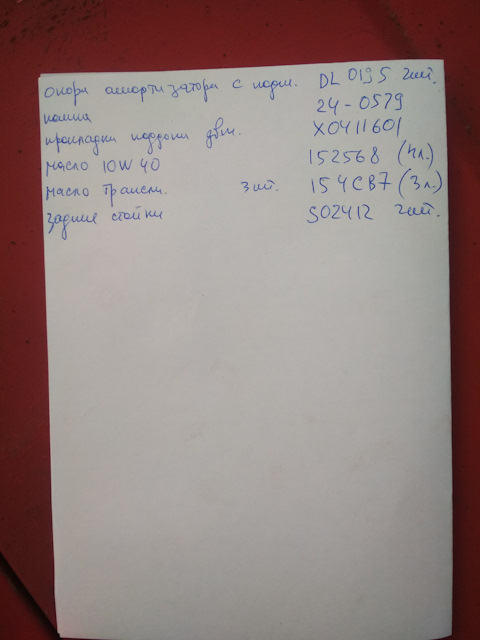 опори амортизатора с подш. DL 0195 2шт.
помпа 24-0579
прокладки поддона двт. X0411601
масло 10W40 152568 (4л.)
масло трансм. 3шт. 154CB7 (3л.)
задние стойки S02412 2шт.